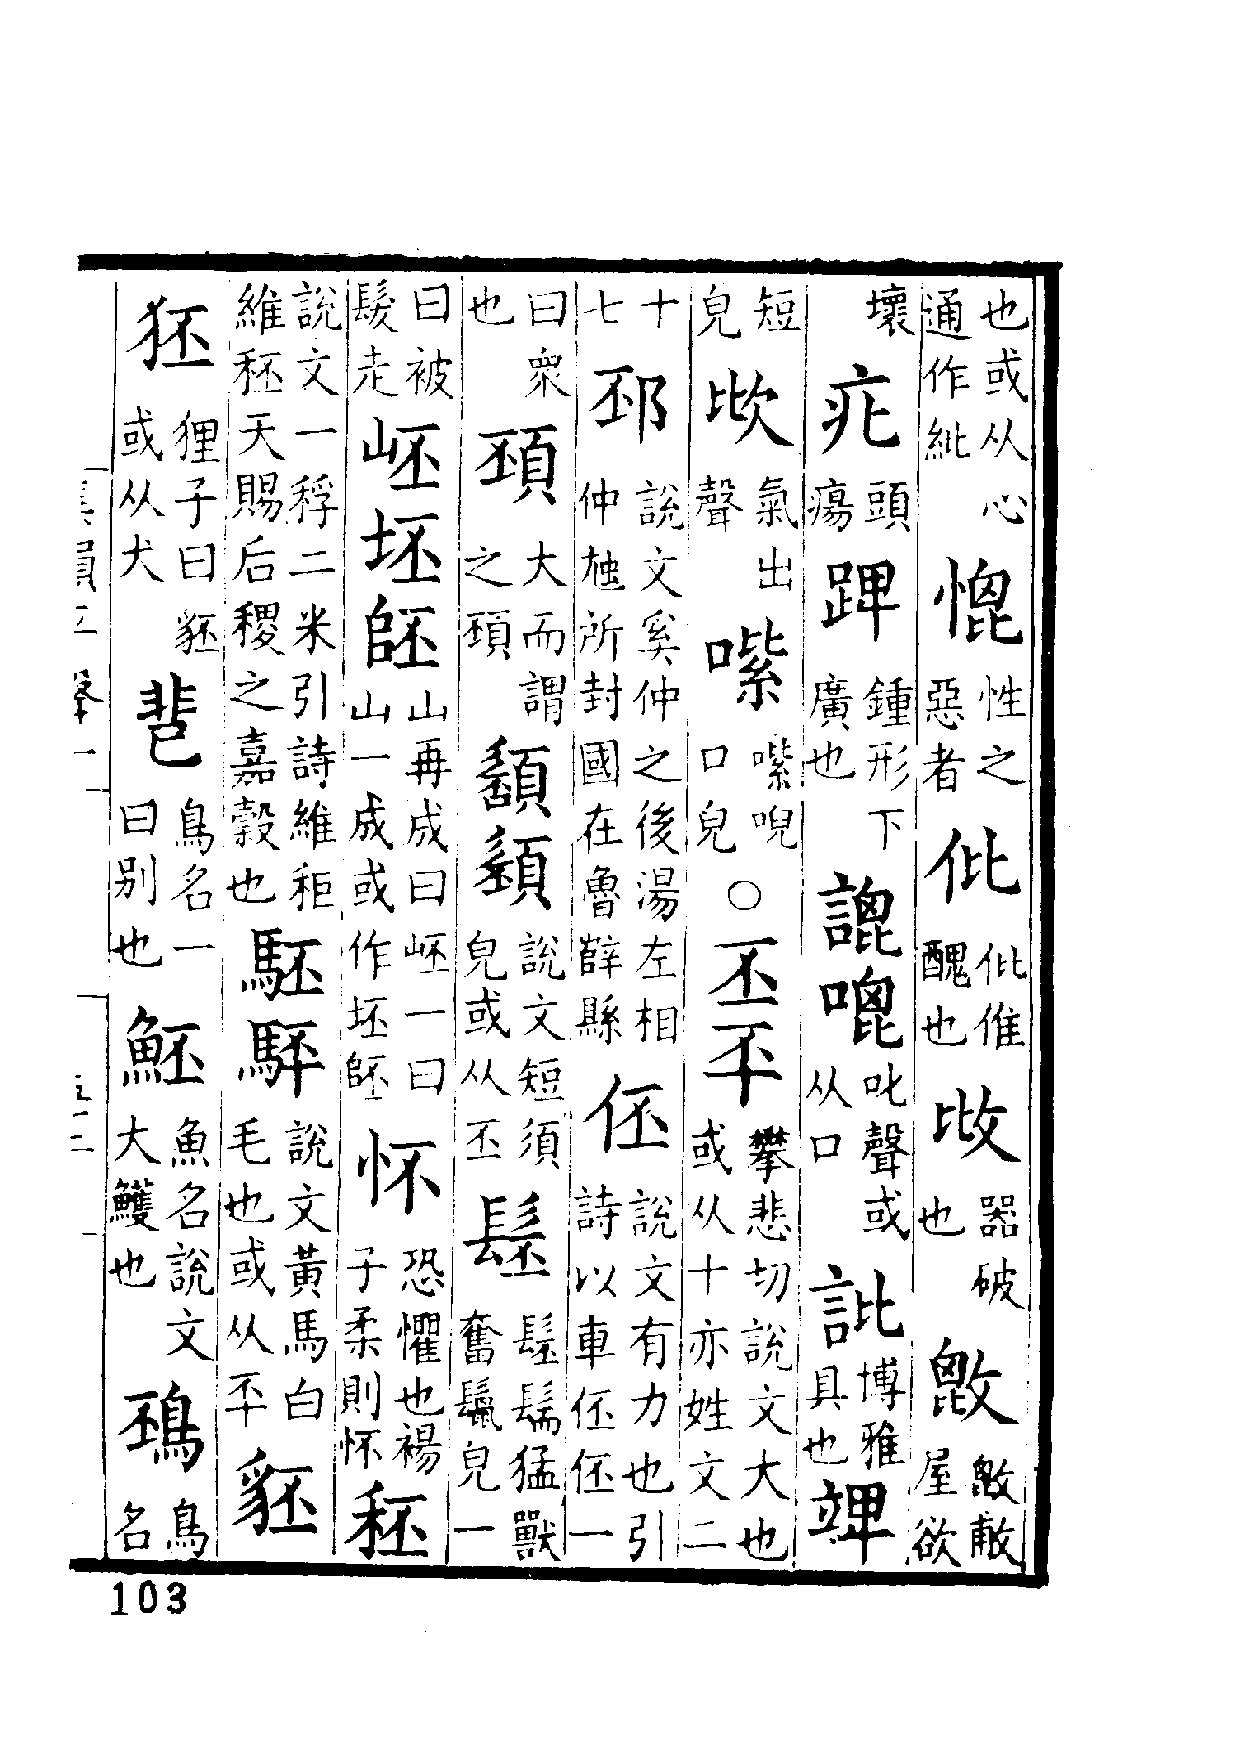 也或从心通作紕性之惡者仳仳倠醜也器破也屋欲
壞疕頭瘍鍾形下廣也叱聲或从口博雅具也竨
短皃氣出聲口皃○丕㔻攀悲切說文大也或从十亦姓文二
十七邳說文奚仲之後湯左相仲虺所封國在魯辥縣伾說文有力也引詩以車伾伾一
曰眾也大而謂之說文短須皃或从丕髬髬髵猛獸奮鬣皃一
曰被髮走岯坯山再成曰岯一曰山一成或作坯怀恐懼也裼子柔則怀秠
說文一稃二米引詩維秬維秠天賜后稷之嘉穀也駓說文黃馬白毛也或从㔻豾
狉狸子曰豾或从犬鳥名一曰別也魾魚名說文大鱯也鳥名
103